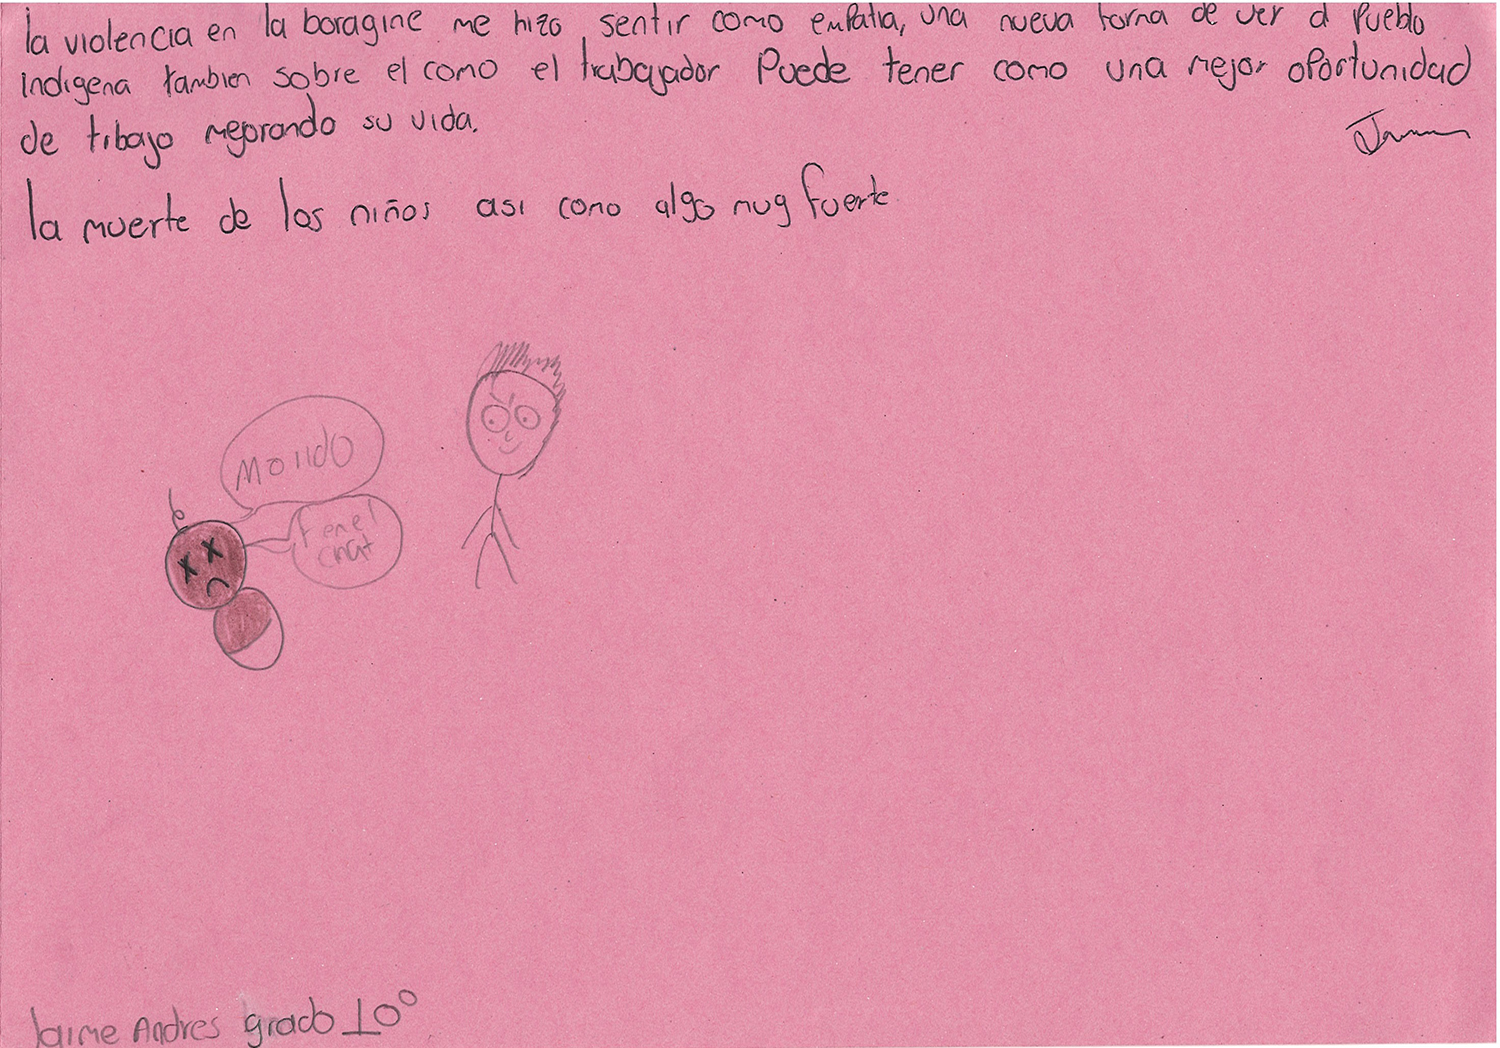 la violencia en la boragine me hizo sentir como empatia, una nueva forma de ver al Pueblo
indigena tambien sobre el como el trabajador Puede tener como una mejor oportunidad
de trbajo mejorando su vida.
la muerte de los niños asi como algo muy fuerte
F en el
chat
Jaime Andres grado 10°